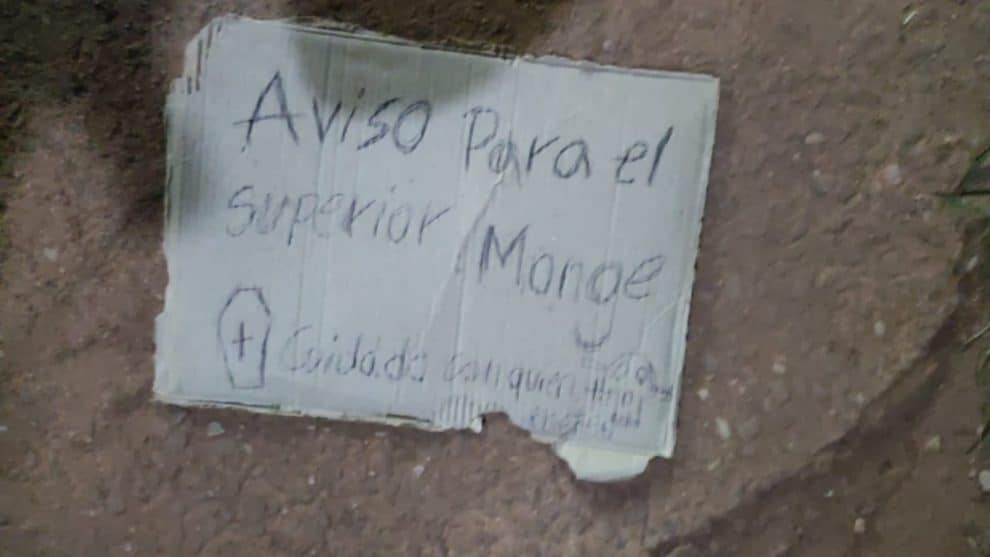 Aviso Para el
superior Monge
Cuidado con quien